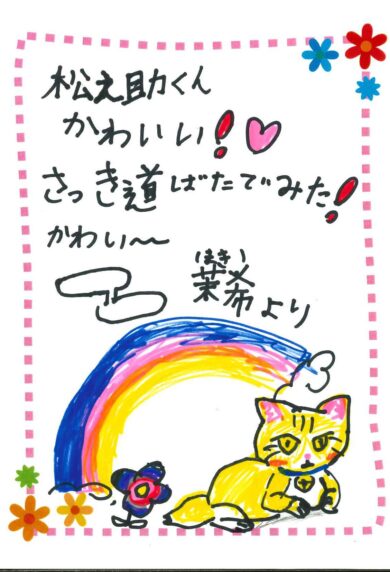 松之助くん
かわいい！♡
さっき道ばたでみた！
かわい〜
より